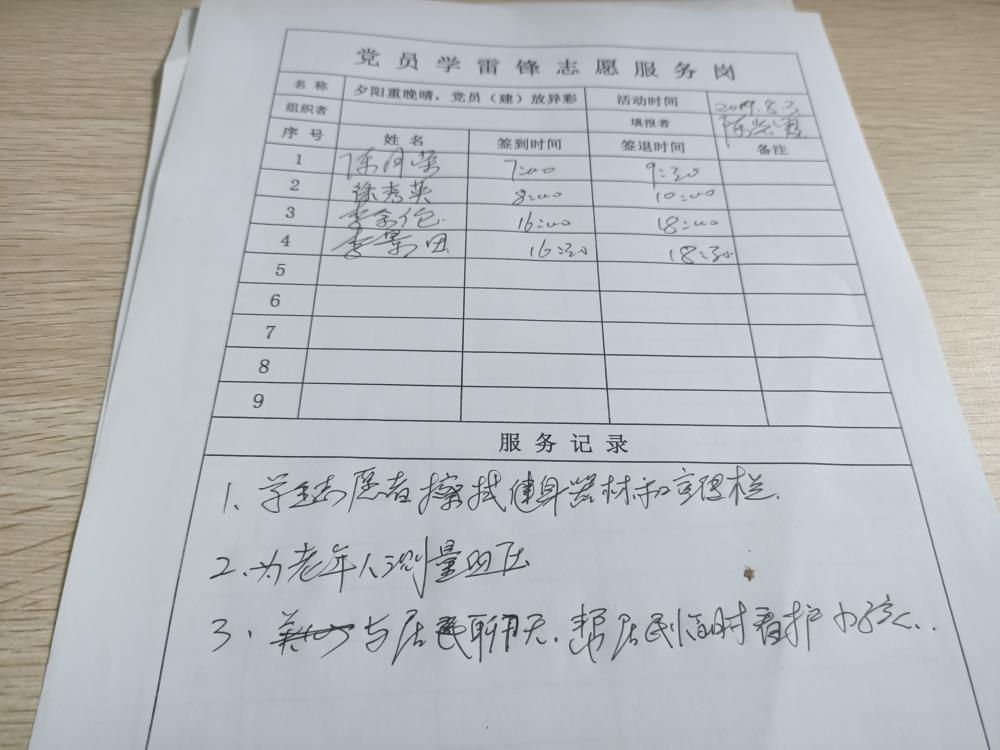 党员学雷锋志愿服务岗
名称 夕阳重晚晴，党员（建）放异彩 活动时间 2019.8.3
组织者 填报者
序号 姓名 签到时间 签退时间 备注
1 陈月荣 7:00 9:30
2 徐秀英 8:00 10:00
3 16:00 18:00
4 李景田 16:30 18:30
5
6
7
8
9
服务记录
1、学生志愿者擦拭健身器材和宣传栏.
2、为老年人测量血压
3、与居民聊天.帮居民临时看护小孩..